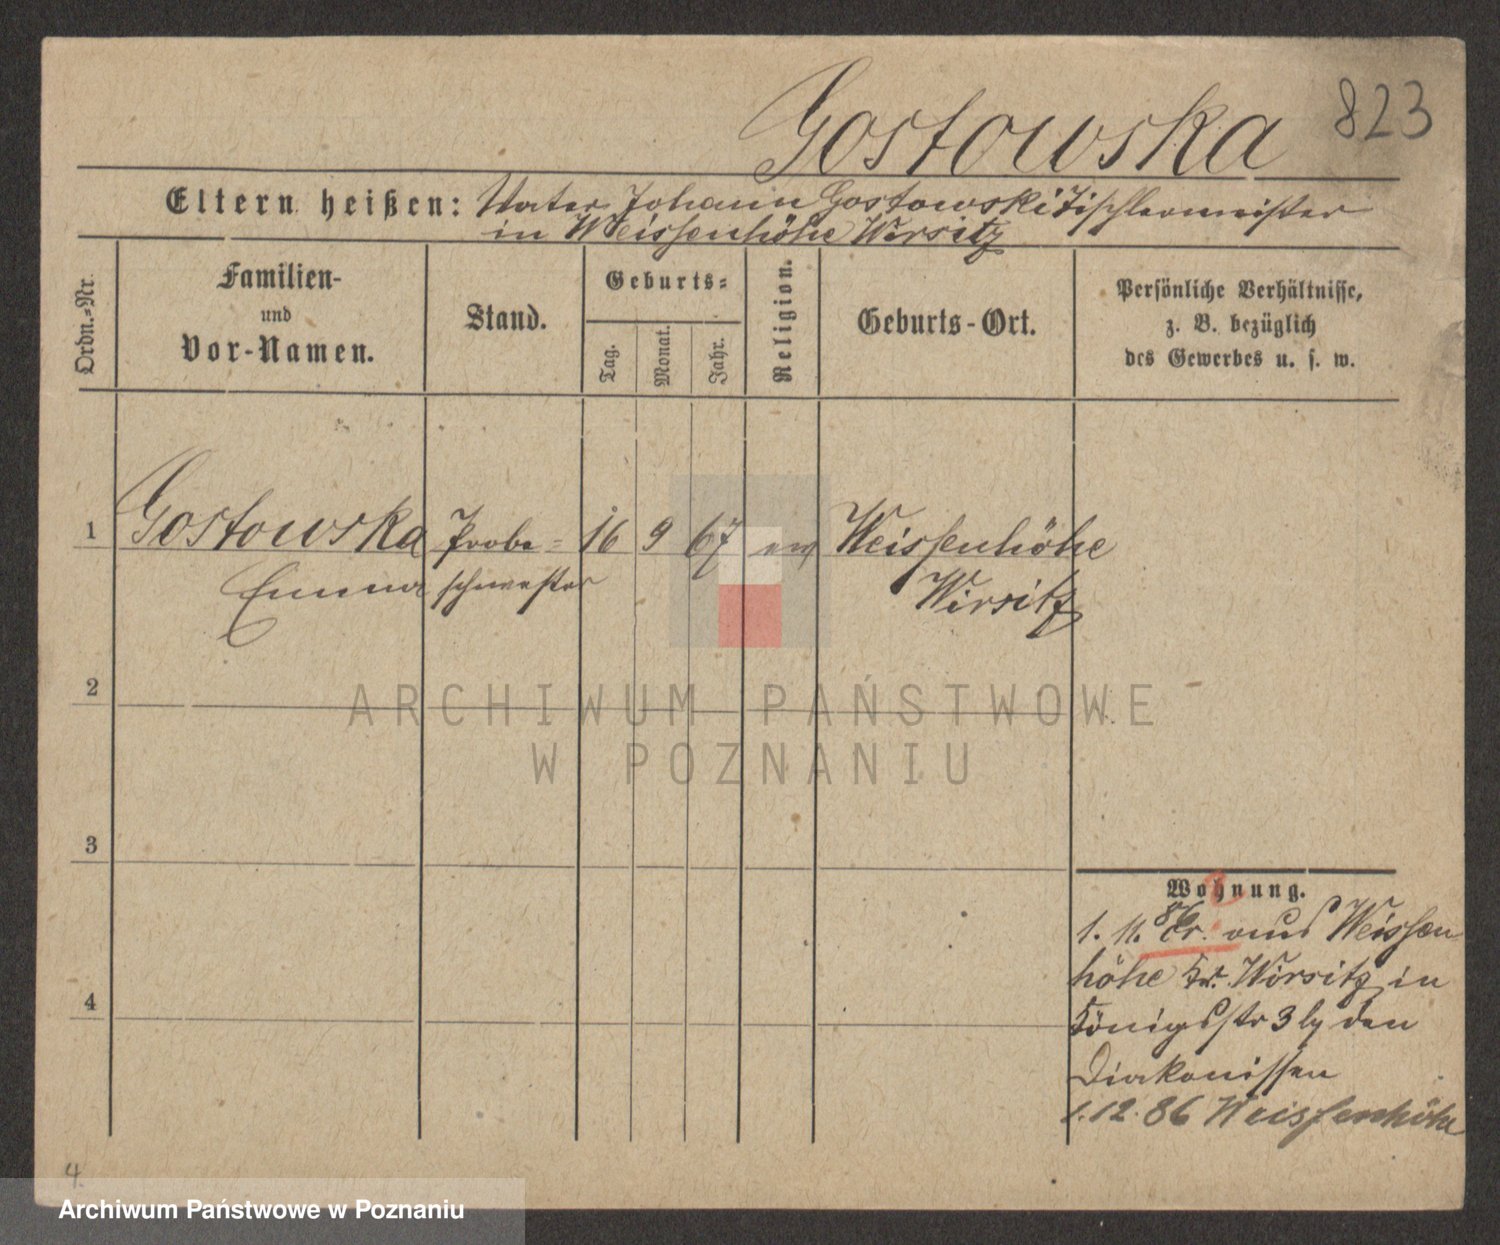 Gostowska
823
Eltern heißen: Vater Johann Gostowski Tischlermeister
in Weissenhöhe Wirsitz
Ordn.-Nr.
Familien-
und
Vor-Namen.
Stand.
Geburts-
Tag.
Monat.
Jahr.
Religion.
Geburts-Ort.
Persönliche Verhältnisse,
z. B. bezüglich
des Gewerbes u. s. w.
1 Gostowska Probe- 16 9 67 ev Weissenhöhe
Emma schwester Wirsitz
2
ARCHIWUM PAŃSTWOWE
W POZNANIU
3
4
Wohnung.
1. 11. 86 aus Weissen-
höhe Kr. Wirsitz in
Königsstr 3 den
Diakonissen
1.12.86 Weissenhöhe
4.
Archiwum Państwowe w Poznaniu